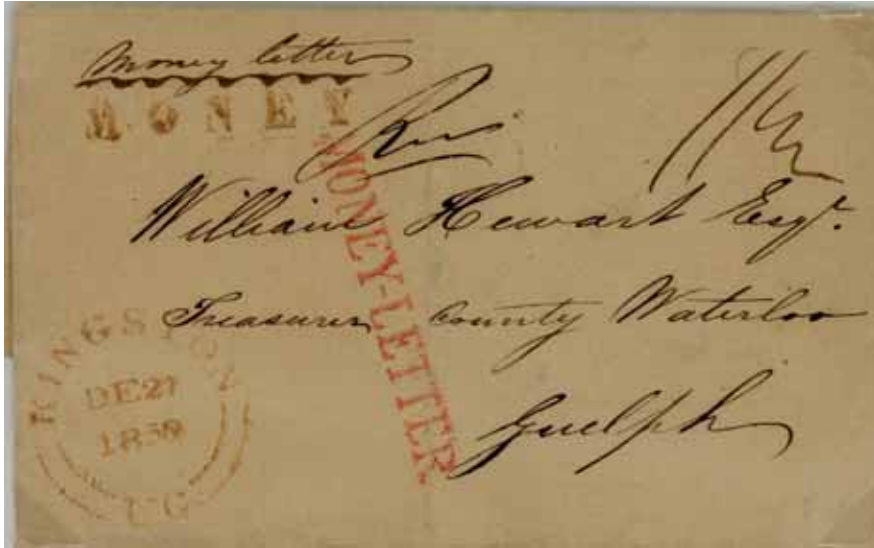 Money letter
MONEY
MONEY-LETTER.
William Hewart Esqr.
Treasurer County Waterloo
Guelph
KINGSTON
DE 27
U.C